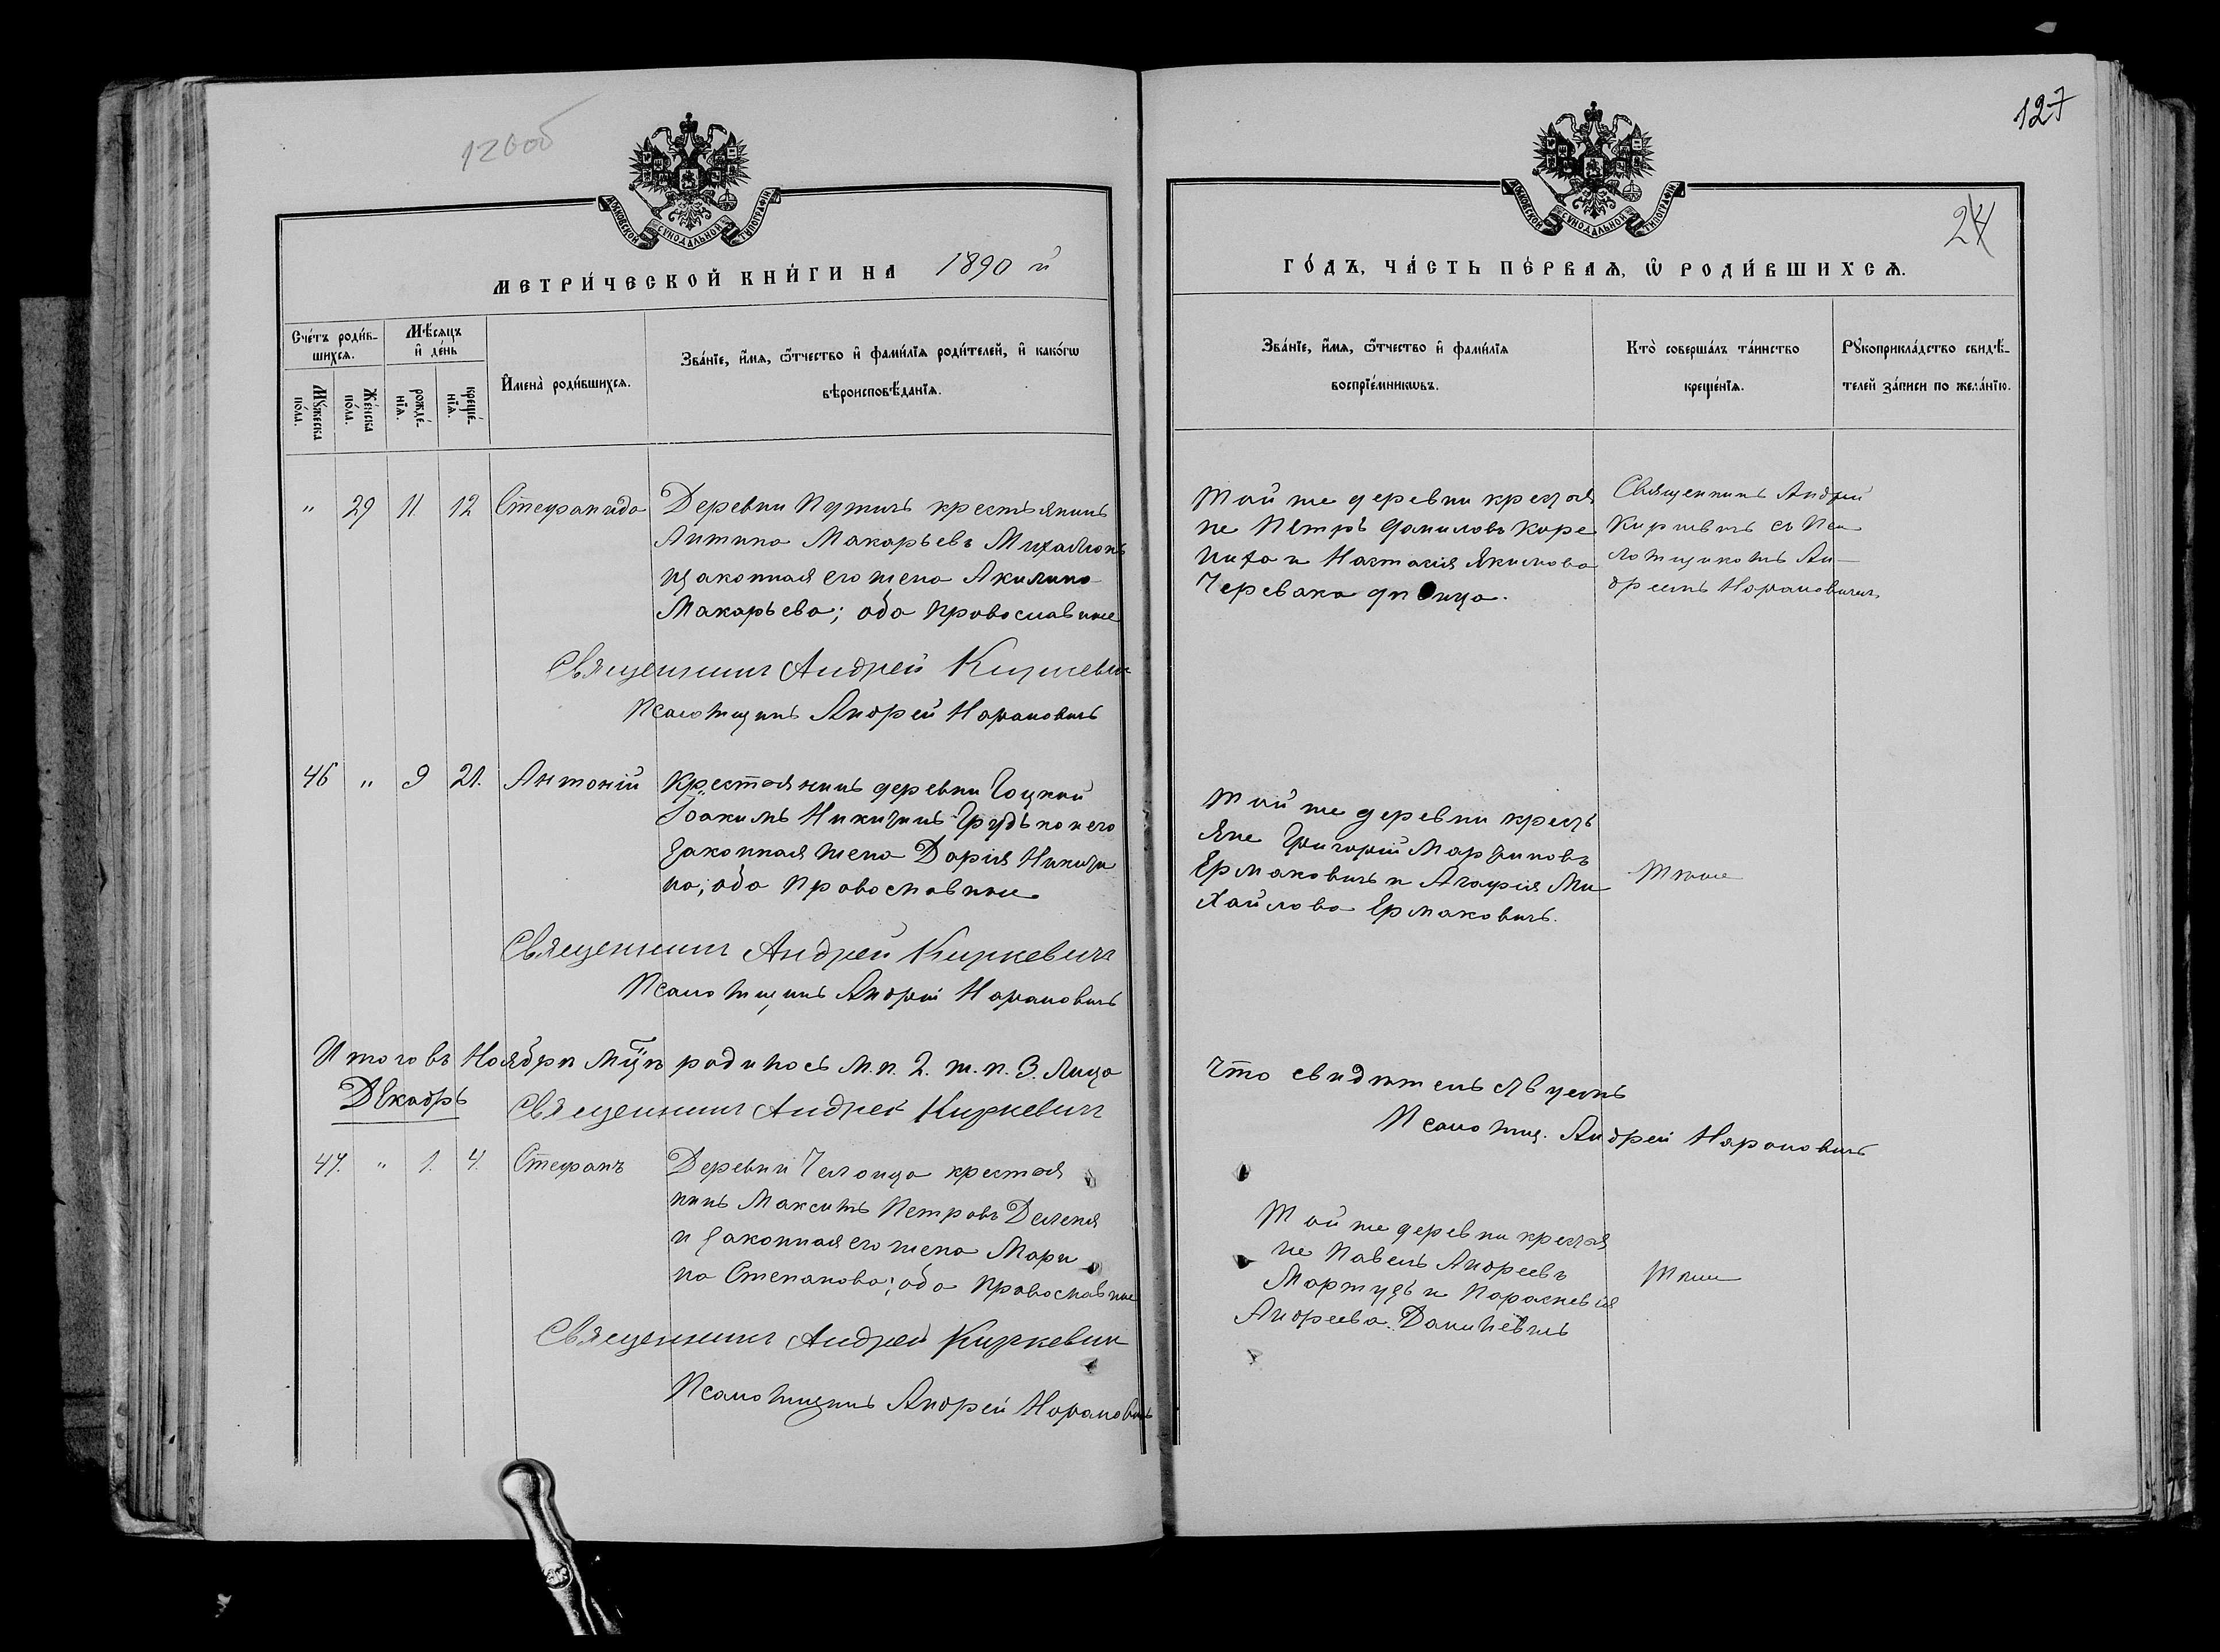 126об
127
24
МОСКОВСКОЙ СѴНОДАЛЬНОЙ ТИПОГРАФІИ
МЕТРИ́ЧЕСКОЙ КНИ́ГИ НА 1890 й
Сче́тъ роди́вшихсѧ.
Мѣ́сѧцъ и҆ де́нь
И҆мена̀ роди́вшихсѧ.
Зва́нїе, и҆́мѧ, ѻ҆́тчество и҆ фами́лїѧ роди́телей, и҆ како́гѡ
вѣроисповѣ́данїѧ.
Мꙋ́жеска по́ла.
Же́нска по́ла.
рожде́нїѧ.
креще́нїѧ.
" 29 11 12 Стефанида Деревни Путичъ крестьянинъ
Антипа Макарьевъ
и законная его жена Акилина
Макарьева; оба православные
Священникъ Андрей Киркевичъ
Псаломщикъ Андрей Наранович
46 " 9 21. Антоній Крестьянинъ деревни Гоцкой
Іоакимъ Никитинъ Грудько и его
законная жена Дарія Никити
на; оба православные
Священникъ Андрей Киркевичъ
Псаломщикъ Андрей Наранович
Итого въ Ноябрѣ мцѣ родилось м.п. 2. ж.п. 3. лица
Декабрь Священникъ Андрей Киркевичъ
47. " 1. 4. Стефанъ Деревни крестья
нинъ Максимъ Петровъ
и законная его жена Мари
на Степанова; оба православные
Священникъ Андрей Киркевичъ
Псаломщикъ Андрей Наранович
МОСКОВСКОЙ СѴНОДАЛЬНОЙ ТИПОГРАФІИ
ГО́ДЪ, ЧА́СТЬ ПЕ́РВАѦ, Ѡ҆ РОДИ́ВШИХСѦ.
Зва́нїе, и҆́мѧ, ѻ҆́тчество и҆ фами́лїѧ
воспрїе́мникѡвъ.
Кто̀ соверша́лъ та́инство
креще́нїѧ.
Рꙋкоприкла́дство свидѣ́-
телей за́писи по жела́нїю.
Той же деревни крестья
не Петръ Даниловъ Коре
пиха и Настасія Якимова
Черевака дѣвица.
Священникъ Андрей
Киркевичъ съ Пса
ломщикомъ Ан-
дреемъ Нарановичемъ
Той же деревни кресть
яне Григорій Мартиновъ
Ермаковичъ и Агафія Ми
хайлова Ермаковичъ.
Тѣже
Что свидѣтельствуемъ
Псаломщ. Андрей Наранович
Той же деревни крестья
не Павелъ Андреевъ
Мартузъ и Параскевія
Андреева Данилевичъ
Тѣже